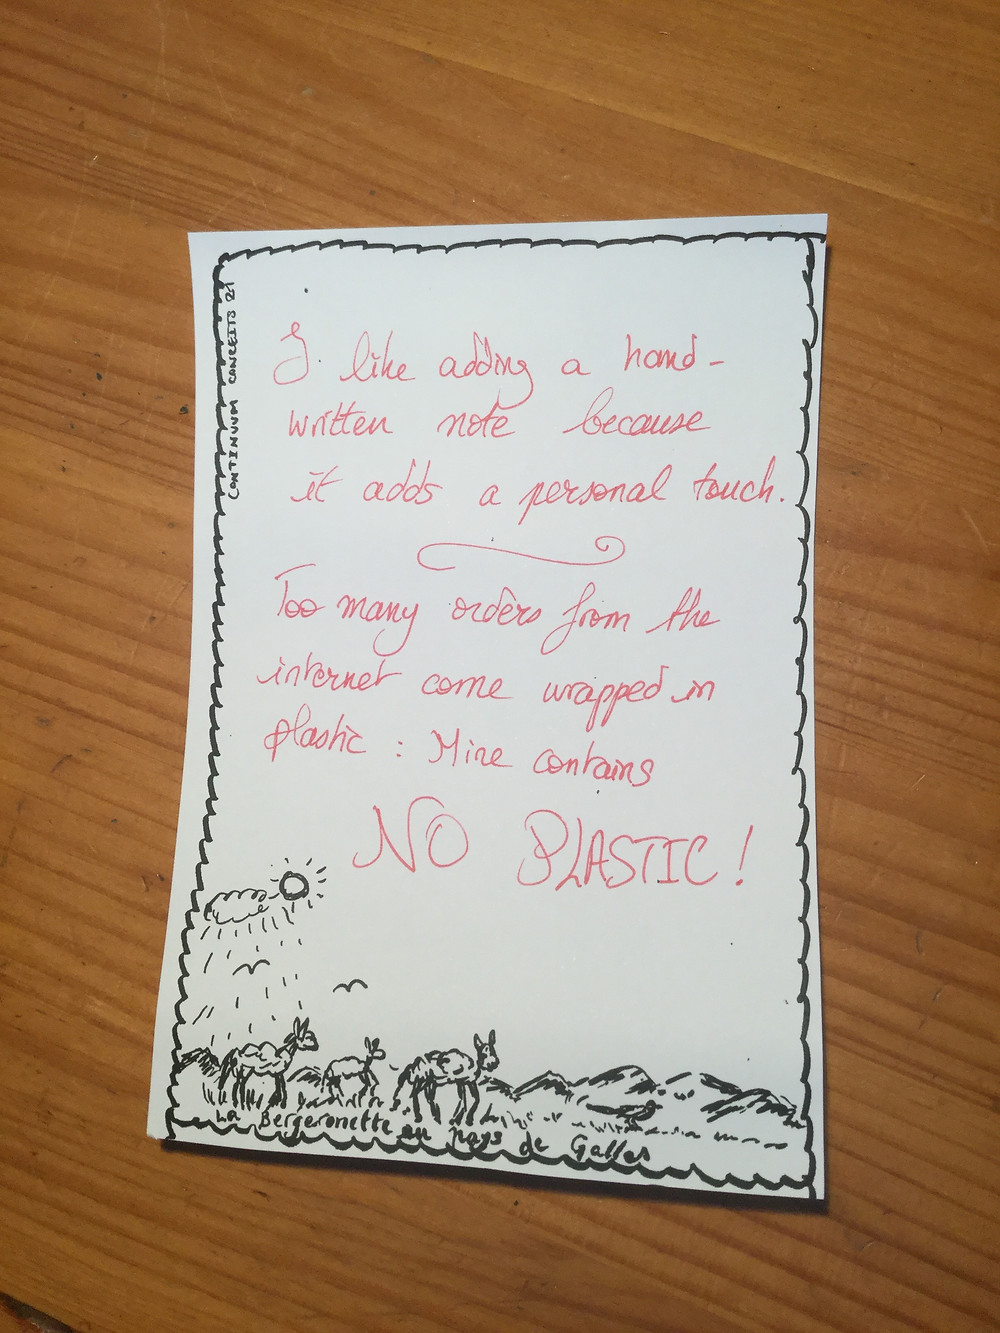 CONTINUUM CONCEITS 21
I like adding a hand-
written note because
it adds a personal touch.
Too many orders from the
internet come wrapped in
plastic : Mine contains
NO PLASTIC !
La Bergeronette au pays de Galles